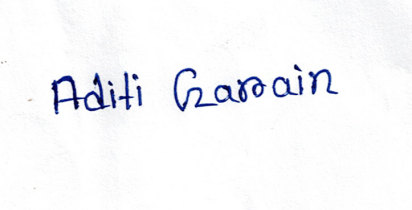 Aditi Garain